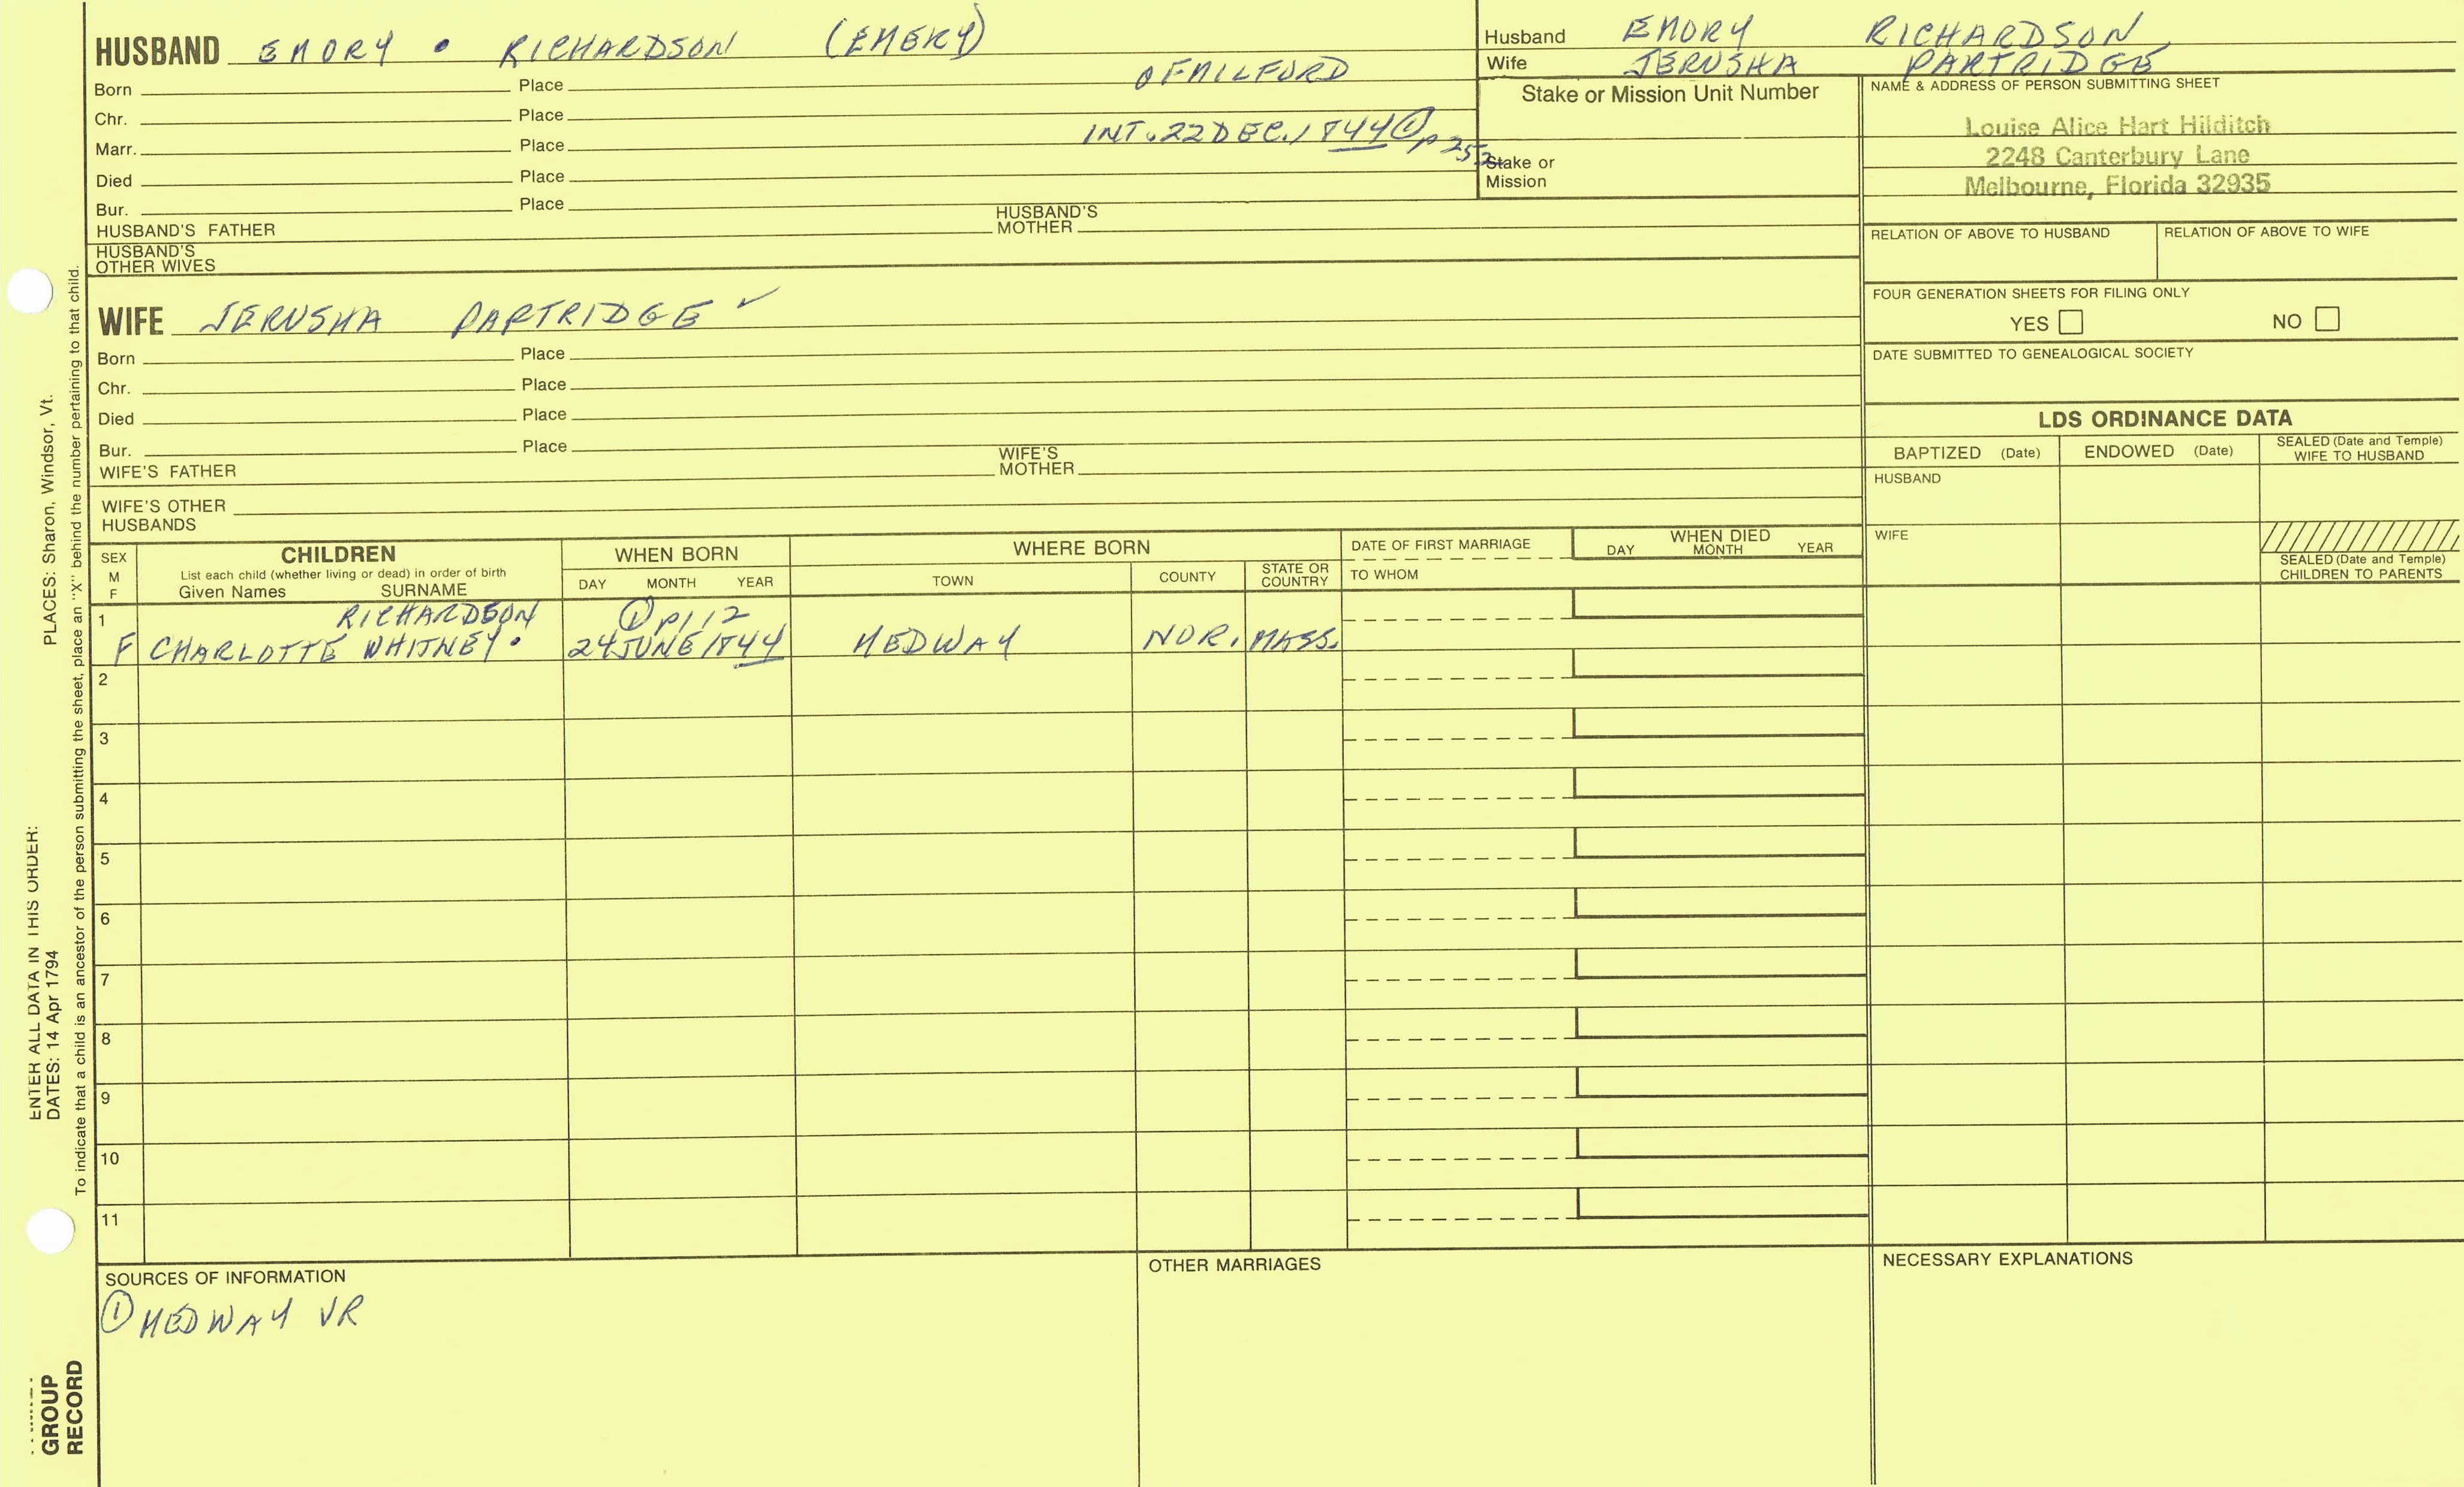 HUSBAND EMORY • RICHARDSON (EMERY)
OF MILFORD
Born Place
Chr. Place
Marr. Place INT. 22 DEC. 1844 ① p 252
Died Place
Bur. Place
HUSBAND'S FATHER HUSBAND'S MOTHER
HUSBAND'S
OTHER WIVES
Husband EMORY RICHARDSON
Wife JERUSHA PARTRIDGE
Stake or Mission Unit Number
Stake or
Mission
NAME & ADDRESS OF PERSON SUBMITTING SHEET
Louise Alice Hart Hilditch
2248 Canterbury Lane
Melbourne, Florida 32935
RELATION OF ABOVE TO HUSBAND RELATION OF ABOVE TO WIFE
FOUR GENERATION SHEETS FOR FILING ONLY
YES NO
DATE SUBMITTED TO GENEALOGICAL SOCIETY
WIFE JERUSHA PARTRIDGE ✓
Born Place
Chr. Place
Died Place
Bur. Place
WIFE'S FATHER WIFE'S MOTHER
WIFE'S OTHER
HUSBANDS
LDS ORDINANCE DATA
BAPTIZED (Date) ENDOWED (Date) SEALED (Date and Temple) WIFE TO HUSBAND
HUSBAND
WIFE
SEALED (Date and Temple)
CHILDREN TO PARENTS
SEX
M
F
CHILDREN
List each child (whether living or dead) in order of birth
Given Names SURNAME
WHEN BORN
DAY MONTH YEAR
WHERE BORN
TOWN COUNTY STATE OR COUNTRY
DATE OF FIRST MARRIAGE
TO WHOM
WHEN DIED
DAY MONTH YEAR
1 RICHARDSON ① p112
F CHARLOTTE WHITNEY. 24 JUNE 1844 MEDWAY NOR. MASS.
2
3
4
5
6
7
8
9
10
11
SOURCES OF INFORMATION
① MEDWAY VR
OTHER MARRIAGES
NECESSARY EXPLANATIONS
ENTER ALL DATA IN THIS ORDER:
DATES: 14 Apr 1794 PLACES: Sharon, Windsor, Vt.
To indicate that a child is an ancestor of the person submitting the sheet, place an "X" behind the number pertaining to that child.
GROUP
RECORD